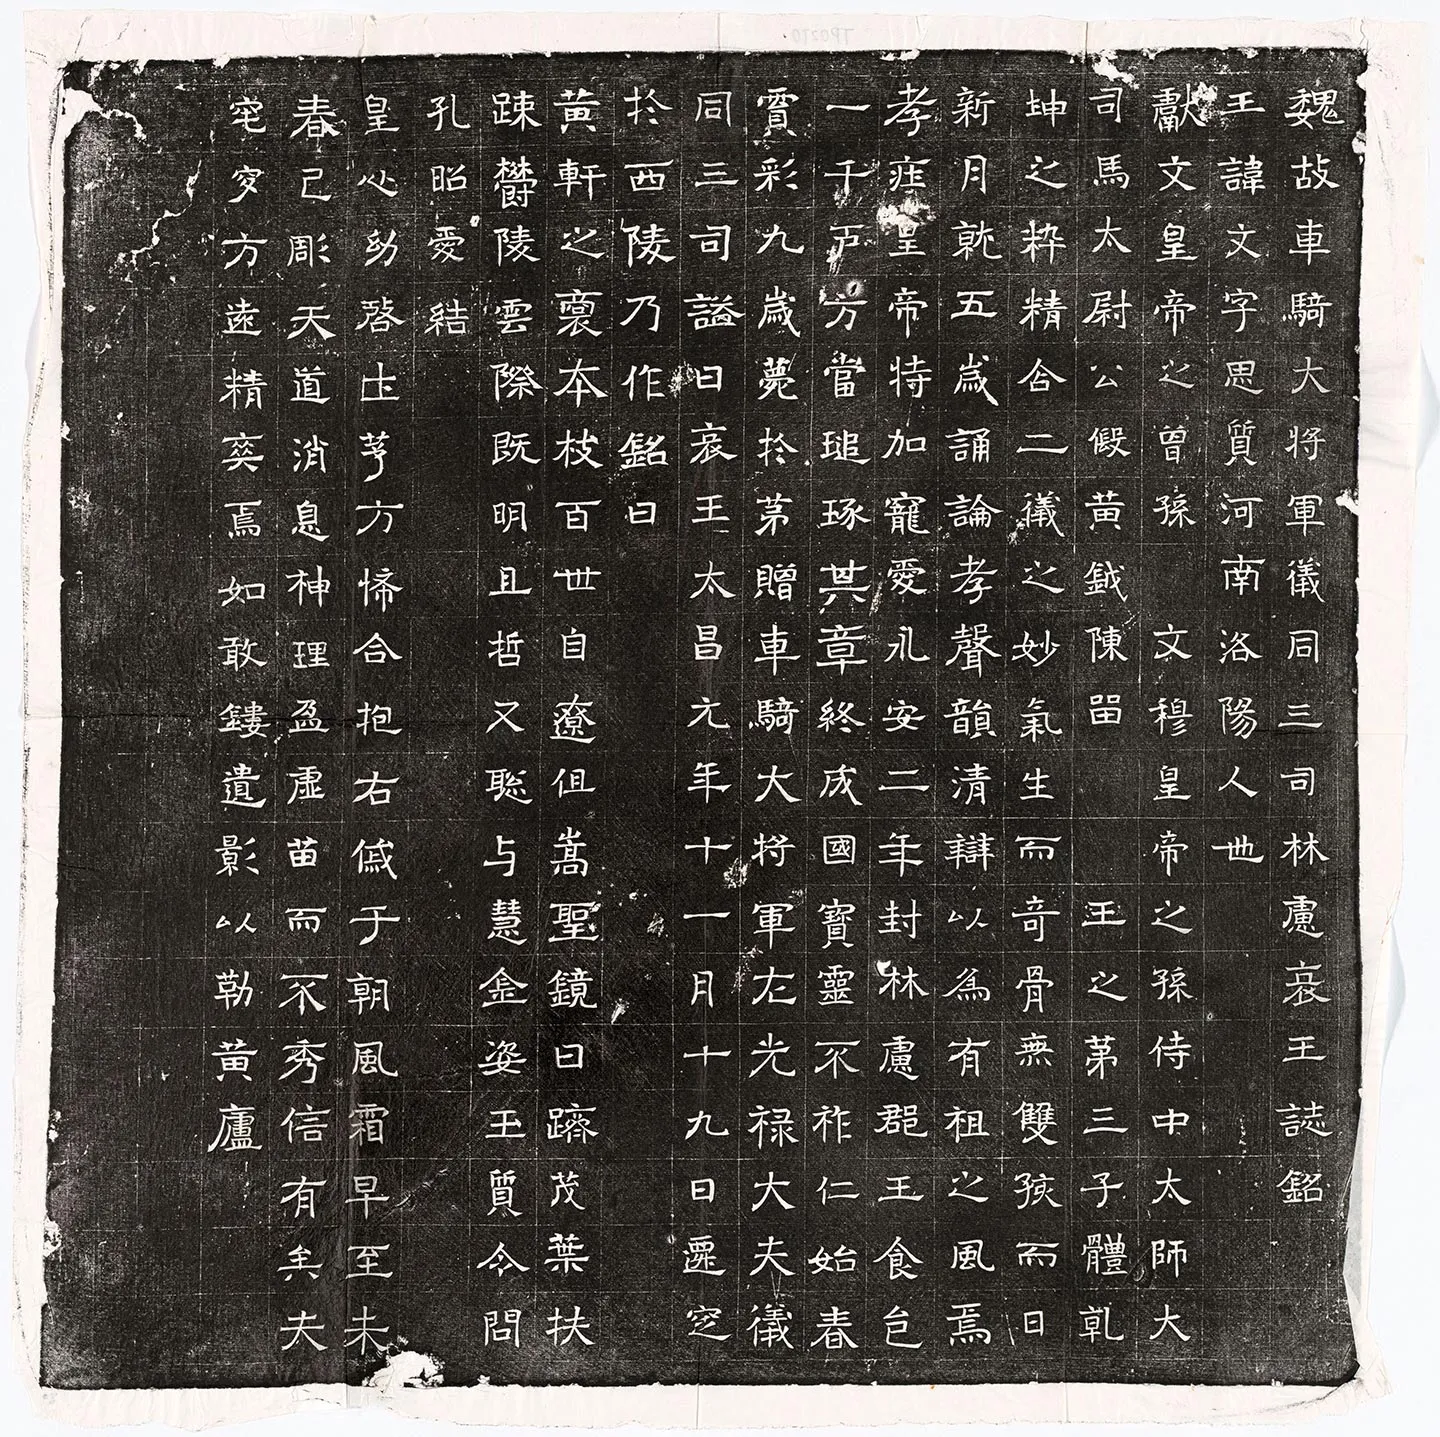 魏故車騎大將軍儀同三司林慮哀王誌銘
王諱文字思質河南洛陽人也
獻文皇帝之曾孫文穆皇帝之孫侍中太師大
司馬太尉公假黃鉞陳留王之第三子體乹
坤之粹精合二儀之妙氣生而奇骨無雙孩而日
新月就五歲誦論孝聲韻清辯以為有祖之風焉
孝莊皇帝特加寵愛永安二年封林慮郡王食邑
一千戶方當琢其章終成國寶靈不祚仁始春
賣彩九歲薨扵苐贈車騎大將軍左光祿大夫儀
同三司謚曰哀王太昌元年十一月十九日遷窆
扵西陵乃作銘曰
黃軒之裔本枝百世自遼伹嵩聖鏡日躋茂葉扶
踈欝陵雲際既明且哲又聦与慧金姿玉質令問
孔昭愛結
皇心幼啓土茅方悕合抱右戚于朝風霜早至未
春已彫天道消息神理盈虛苗而不秀信有矣夫
窀穸方遠精爽焉如敢鏤遺影以勒黃廬